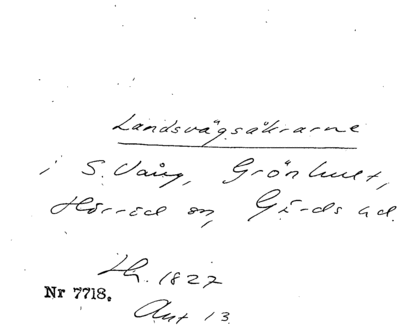 Landsvägsåkrarne
i S. Vång, Grönhult,
Hörröd sn, Gärds hd.
Lh. 1827
Nr 7718.
Akt 13